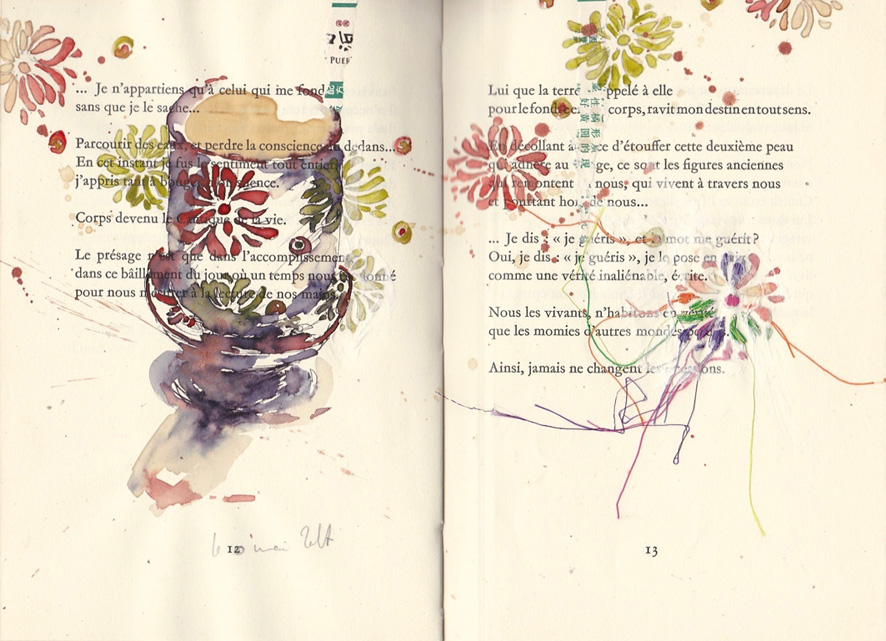 PUER
... Je n'appartiens qu'à celui qui me fond
sans que je le sache...
Parcourir des eaux, et perdre la conscience en dedans...
En cet instant je fus le sentiment tout entier
j'appris tant à bouger en silence.
Corps devenu le Cantique de la vie.
Le présage n'est que dans l'accomplissement
dans ce bâillement du jour où un temps nous est donné
pour nous mener à la lecture de nos mains.
12
Lui que la terre appelé à elle
pour le fondre corps, ravit mon destin en tout sens.
En décollant à force d'étouffer cette deuxième peau
qui adhère au ge, ce sont les figures anciennes
qui remontent nous, qui vivent à travers nous
et pourtant hors de nous...
... Je dis : « je guéris », et mot me guérit ?
Oui, je dis : « je guéris », je le pose en
comme une vérité inaliénable, écrite.
Nous les vivants, n'habitons en vérité
que les momies d'autres mondes
Ainsi, jamais ne changent les ons.
性 橘 形 來
好 黄 圓 的 現
13